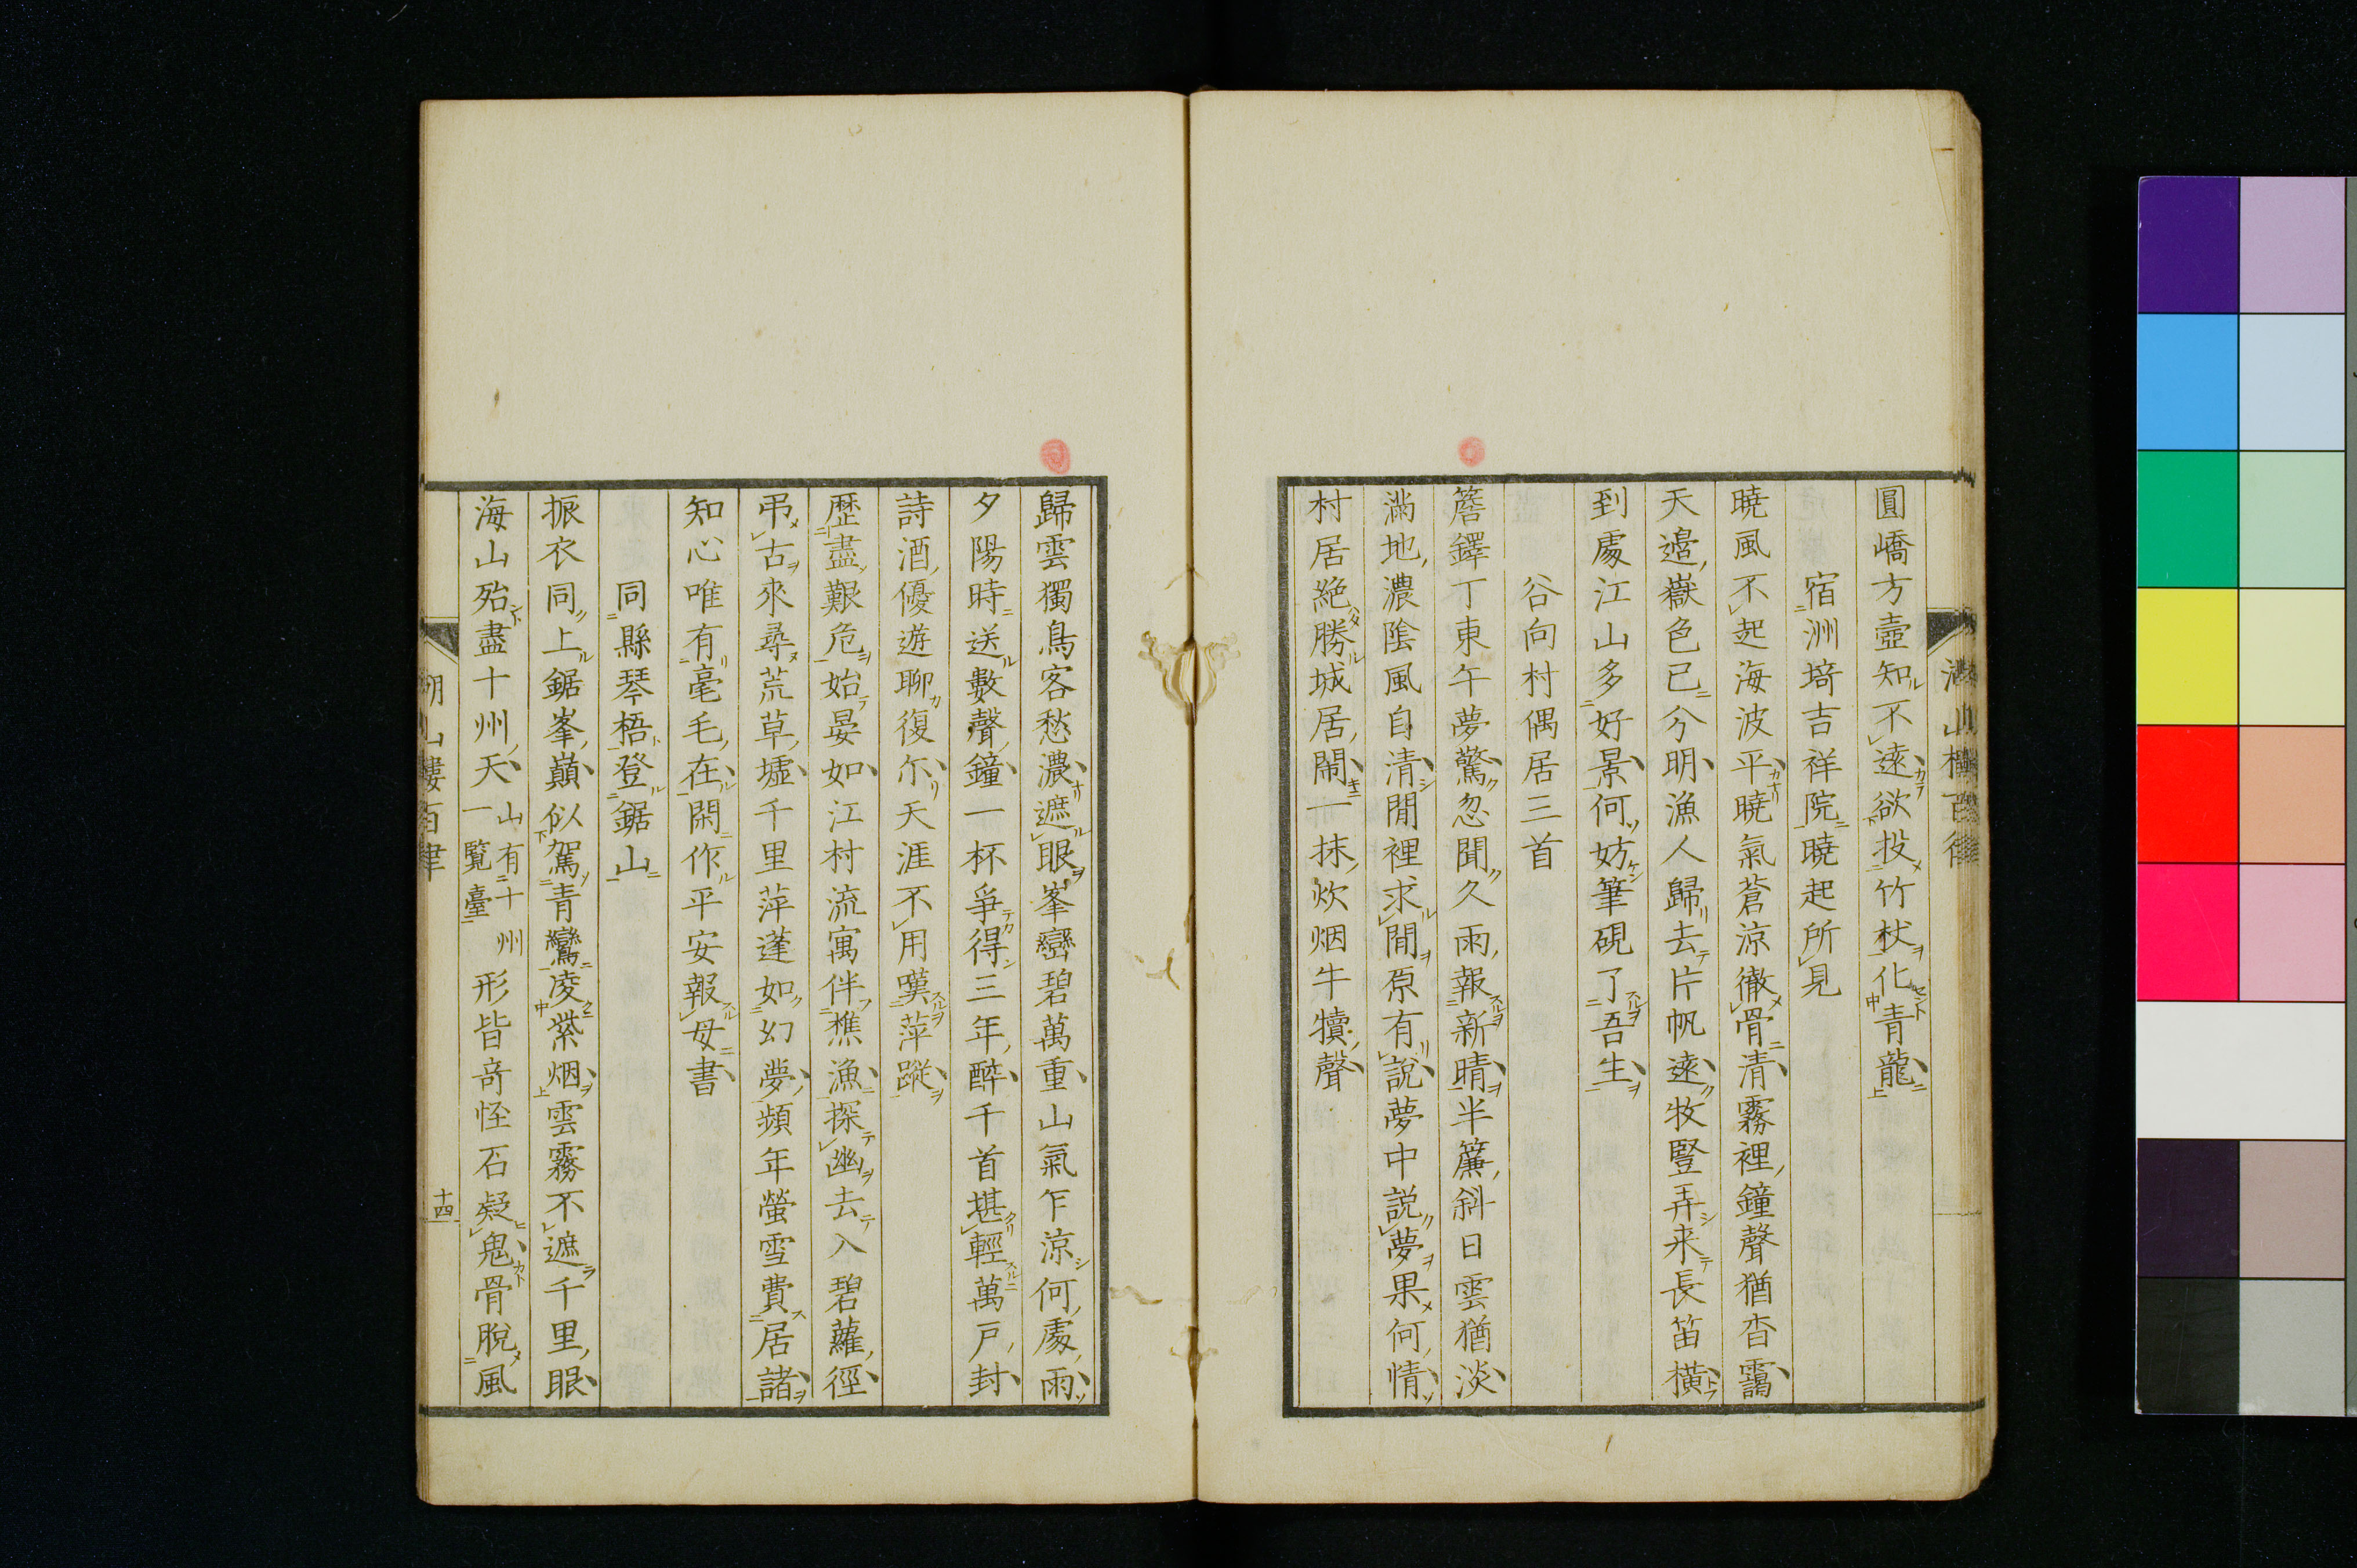 圓嶠方壺知不遠欲投竹杖化青龍
宿洲埼吉祥院曉起所見
曉風不起海波平曉氣蒼涼徹骨清霧裡鐘聲猶杳靄
天邉嶽色已分明漁人歸去片帆遠牧豎弄来長笛橫
到處江山多好景何妨筆硯了吾生
谷向村偶居三首
簷鐸丁東午夢驚忽聞久雨報新晴半簾斜日雲猶淡
滿地濃陰風自清閒裡求閒原有說夢中説夢果何情
村居絶勝城居鬧一抹炊烟牛犢聲
歸雲獨鳥客愁濃遮眼峯巒碧萬重山氣乍涼何處雨
夕陽時送數聲鐘一杯爭得三年醉千首堪輕萬戸封
詩酒優遊聊復尓天涯不用嘆萍蹤
歷盡艱危始晏如江村流寓伴樵漁探幽去入碧蘿徑
弔古來尋荒草墟千里萍蓬如幻夢頻年螢雪費居諸
知心唯有毫毛在閑作平安報母書
同縣琴梧登鋸山
振衣同上鋸峯巔似駕青鸞凌紫烟雲霧不遮千里眼
海山殆盡十州天山有十州一覧臺形皆奇怪石疑鬼骨脫風
湖山樓百律
十四